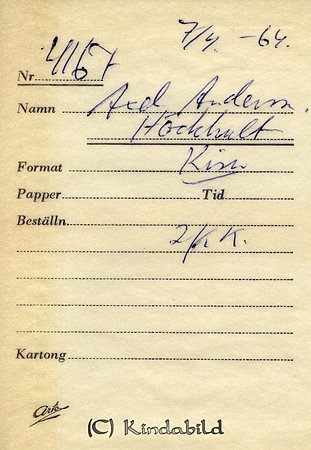 7/4. -64.
Nr 4167
Namn Axel Anderson.
Hökhult
Format Kisa
Papper Tid
Beställn.
2/K K.
Kartong
Ark
(C) Kindabild